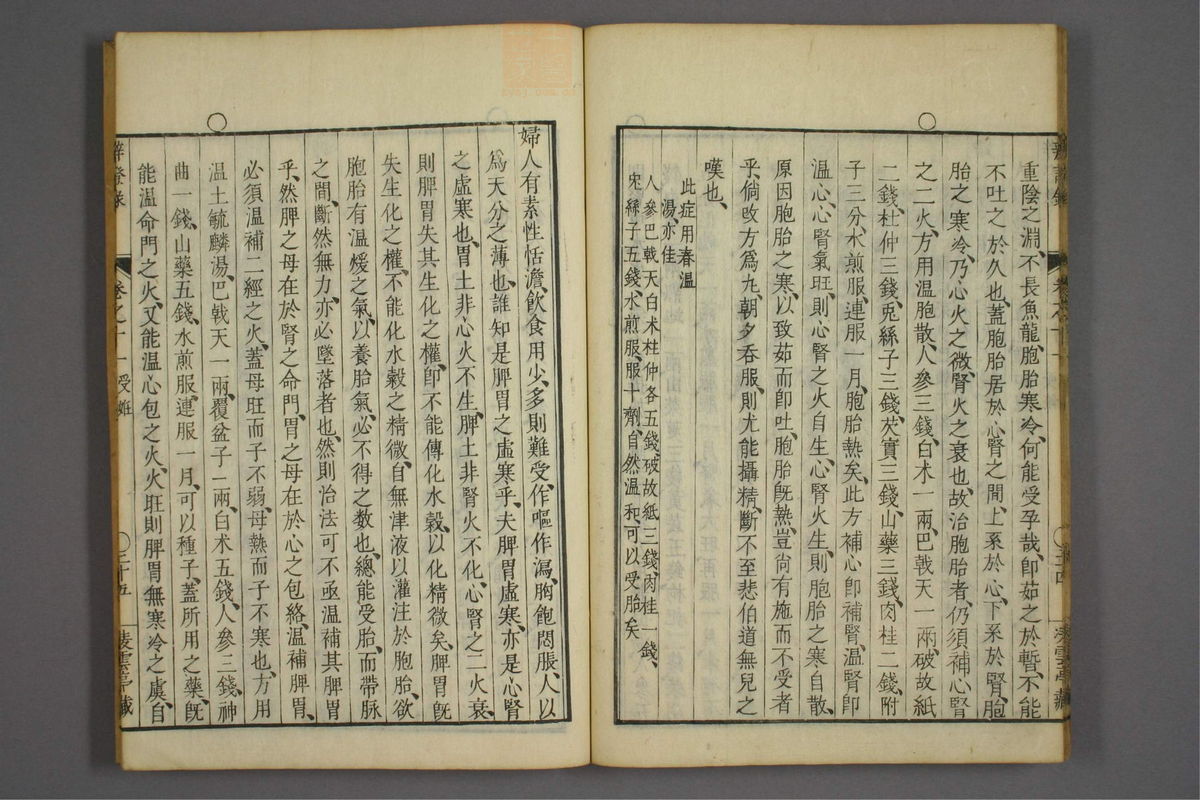 重陰之淵、不長魚龍、胞胎寒冷、何能受孕哉、卽茹之於暫、不能
不吐之於久也、蓋胞胎居於心腎之間、上系於心、下系於腎、胞
胎之寒冷、乃心火之微、腎火之衰也、故治胞胎者、仍須補心腎
之二火、方用溫胞散、人參三錢、白术一兩、巴戟天一兩、破故紙
二錢、杜仲三錢、兎絲子三錢、芡實三錢、山藥三錢、肉桂二錢、附
子三分、水煎服、連服一月、胞胎熱矣、此方補心卽補腎、溫腎卽
溫心、心腎氣旺、則心腎之火自生、心腎火生、則胞胎之寒自散、
原因胞胎之寒、以致茹而卽吐、胞胎旣熱、豈尙有施而不受者
乎、倘改方爲丸、朝夕吞服、則尤能攝精、斷不至悲伯道無兒之
嘆也、
此症用春溫
湯、亦佳
人參巴戟天白术杜仲各五錢、破故紙三錢、肉桂一錢、
兎絲子五錢、水煎服、服十劑、自然溫和、可以受胎矣、
婦人有素性恬澹、飲食用少、多則難受、作嘔作瀉、胸飽悶脹、人以
爲天分之薄也、誰知是脾胃之虛寒乎、夫脾胃虛寒、亦是心腎
之虛寒也、胃土非心火不生、脾土非腎火不化、心腎之二火衰、
則脾胃失其生化之權、卽不能傳化水穀、以化精微矣、脾胃旣
失生化之權、不能化水穀之精微、自無津液以灌注於胞胎、欲
胞胎有溫煖之氣、以養胎氣、必不得之数也、總能受胎、而帶脉
之間、斷然無力、亦必墜落者也、然則治法可不亟溫補其脾胃
乎、然脾之母在於腎之命門、胃之母在於心之包絡、溫補脾胃、
必須溫補二經之火、蓋母旺而子不弱、母熱而子不寒也、方用
溫土毓麟湯、巴戟天一兩、覆盆子一兩、白术五錢、人參三錢、神
曲一錢、山藥五錢、水煎服、連服一月、可以種子、蓋所用之藥、旣
能溫命門之火、又能溫心包之火、火旺則脾胃無寒冷之虞、自
辨證錄 卷之十一 受姙 三十五 凌雲亭藏